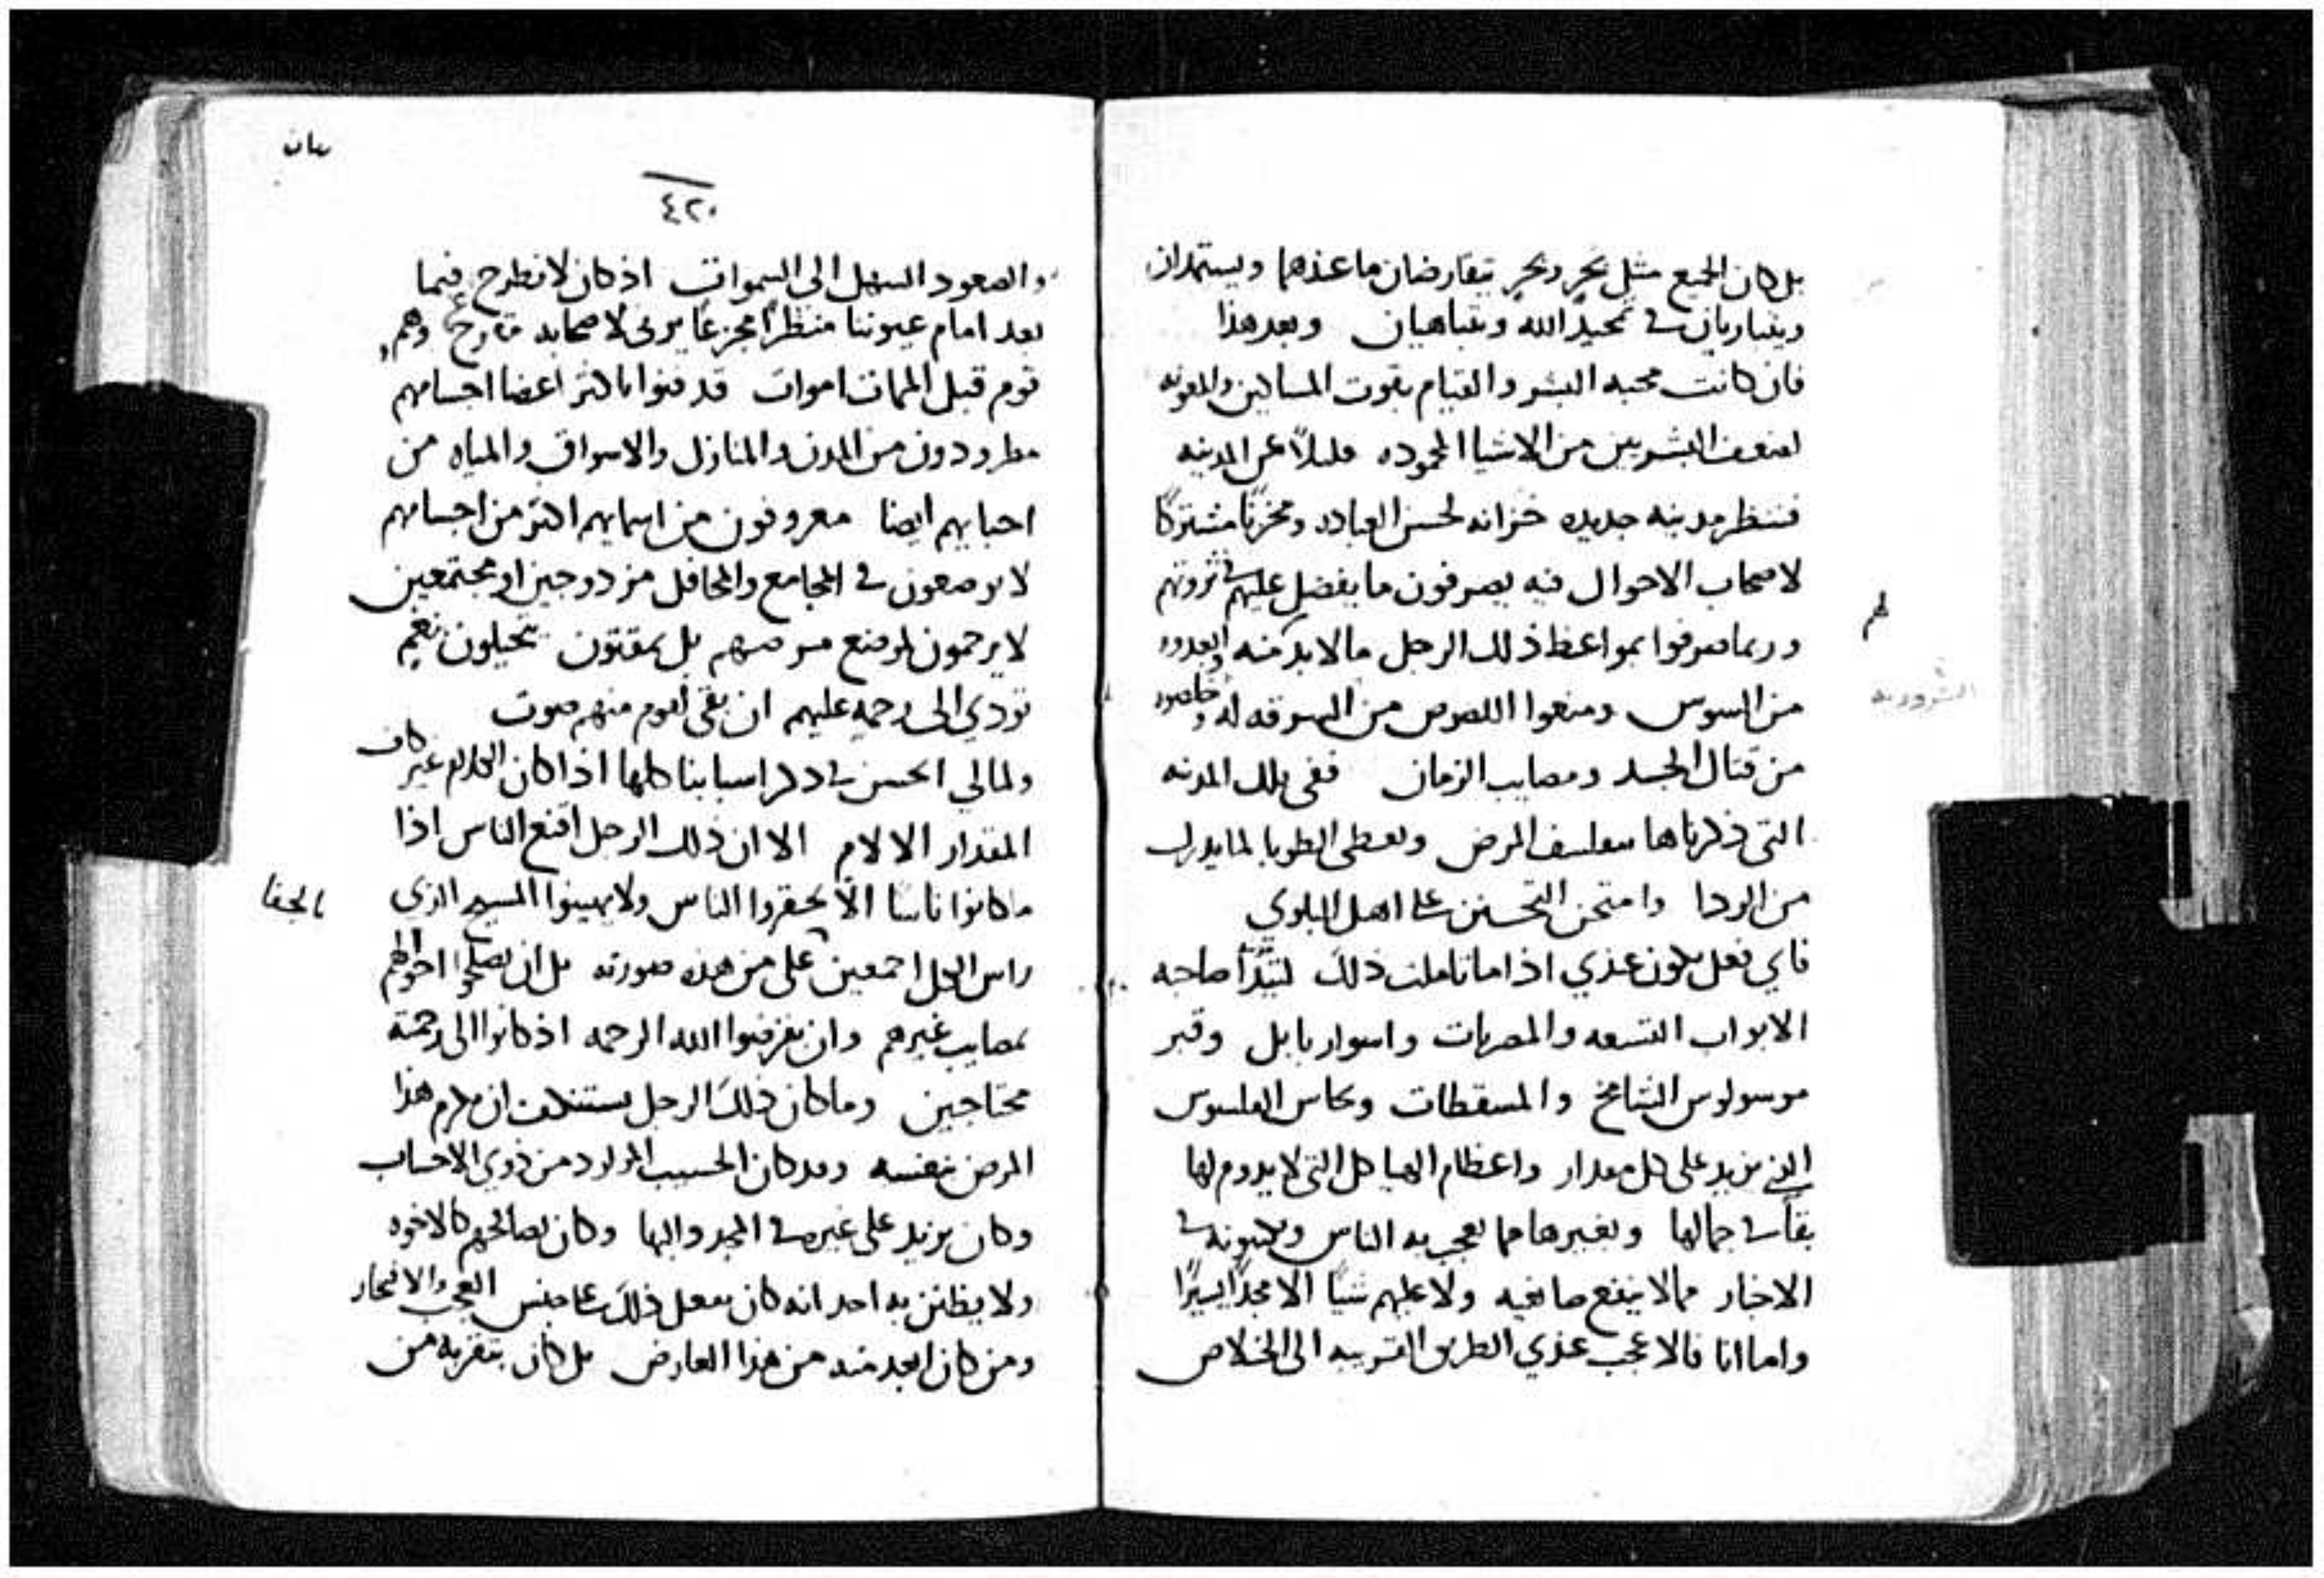 بل كان الجميع مثل بحرٍ وبحرٍ يتقارضان ما عندهما ويستمدان
ويتباريان في تمجيد الله ويتباهيان وبعد هذا
فان كانت محبه البشر والقيام بقوت المساكين والمعونه
لضعف البشريين من الاشيا المحموده قليلاً عن المدينه
فننظر مدينه جديده خزانه لحسن العباده ومخزنًا مشتركًا
لاصحاب الاحوال فيه يصرفون ما يفضل عليهم في ثروتهم
لهم
وربما صرفوا بمواعظ ذلك الرجل ما لا بد منه وابعدوه
من السوس ومنعوا اللصوص من السرقه له وخلصوه
من قتال الحسد ومصايب الزمان ففي تلك المدينه
التي ذكرناها يتفلسف المرض وتعطى الطوبا لما يدرك
من الردا وامتحن التحسنن على اهل البلوي
فاي فعل يكون عندي اذا ما تاملت ذلك
الابواب التسعه والمصريات واسوار بابل وقبر
موسولوس الشامخ والمسقطات ونحاس
الذي يزيد على كل مقدار واعظام الهياكل التي لا يدوم لها
بقا في جمالها وبغيرها مما يعجب به الناس ويكتبونه في
الاخبار مما لا ينفع صانعيه ولا عليهم شيًا الا مجدًا يسيرًا
واما انا فالاعجب عندي الطريق القريبه الى الخلاص
٤٢٠
والصعود السهل الى السموات اذ كان لا نطرح فيما
بعد امام عيوننا منظرًا مجزعًا يرثى لاصحابه وهم
قوم قبل الممات اموات قد فنوا باكثر اعضا اجسامهم
مطرودون من المدن والمنازل والاسواق والمياه من
احبابهم ايضا معروفون من اسمايهم اكثر من اجسامهم
لا يوضعون في المجامع والمحافل مزدوجين او مجتمعين
لا يرحمون لموضع مرضهم بل يمقتون يتحيلون نغم
تودي الى رحمه عليهم ان بقي لقوم منهم صوت
ولما لي الحسن في ذكر اسبابنا كلها اذا كان الكلام غير كاف
المقدار الالام الا ان ذلك الرجل اقنع الناس اذا
ما كانوا ناسًا الا يحقروا الناس ولا يهينوا المسيح الذي
بالجفا
راس الكل اجمعين على من هذه صورته بل ان يصلحوا احوالهم
بمصايب غيرهم وان يقرضوا الله الرحمه اذ كانوا الى رحمته
محتاجين وما كان ذلك الرجل يستنكف ان يكرم هذا
المرض بنفسه وقد كان الحسيب المولود من ذوي الاحساب
وكان يزيد على غيره في المجد والبها وكان يصافحهم كالاخوه
ولا يظنن به احد انه كان يفعل ذلك على جنس العجب والافتخار
ومن كان ابعد منه من هذا العارض بل كان بتقربه من